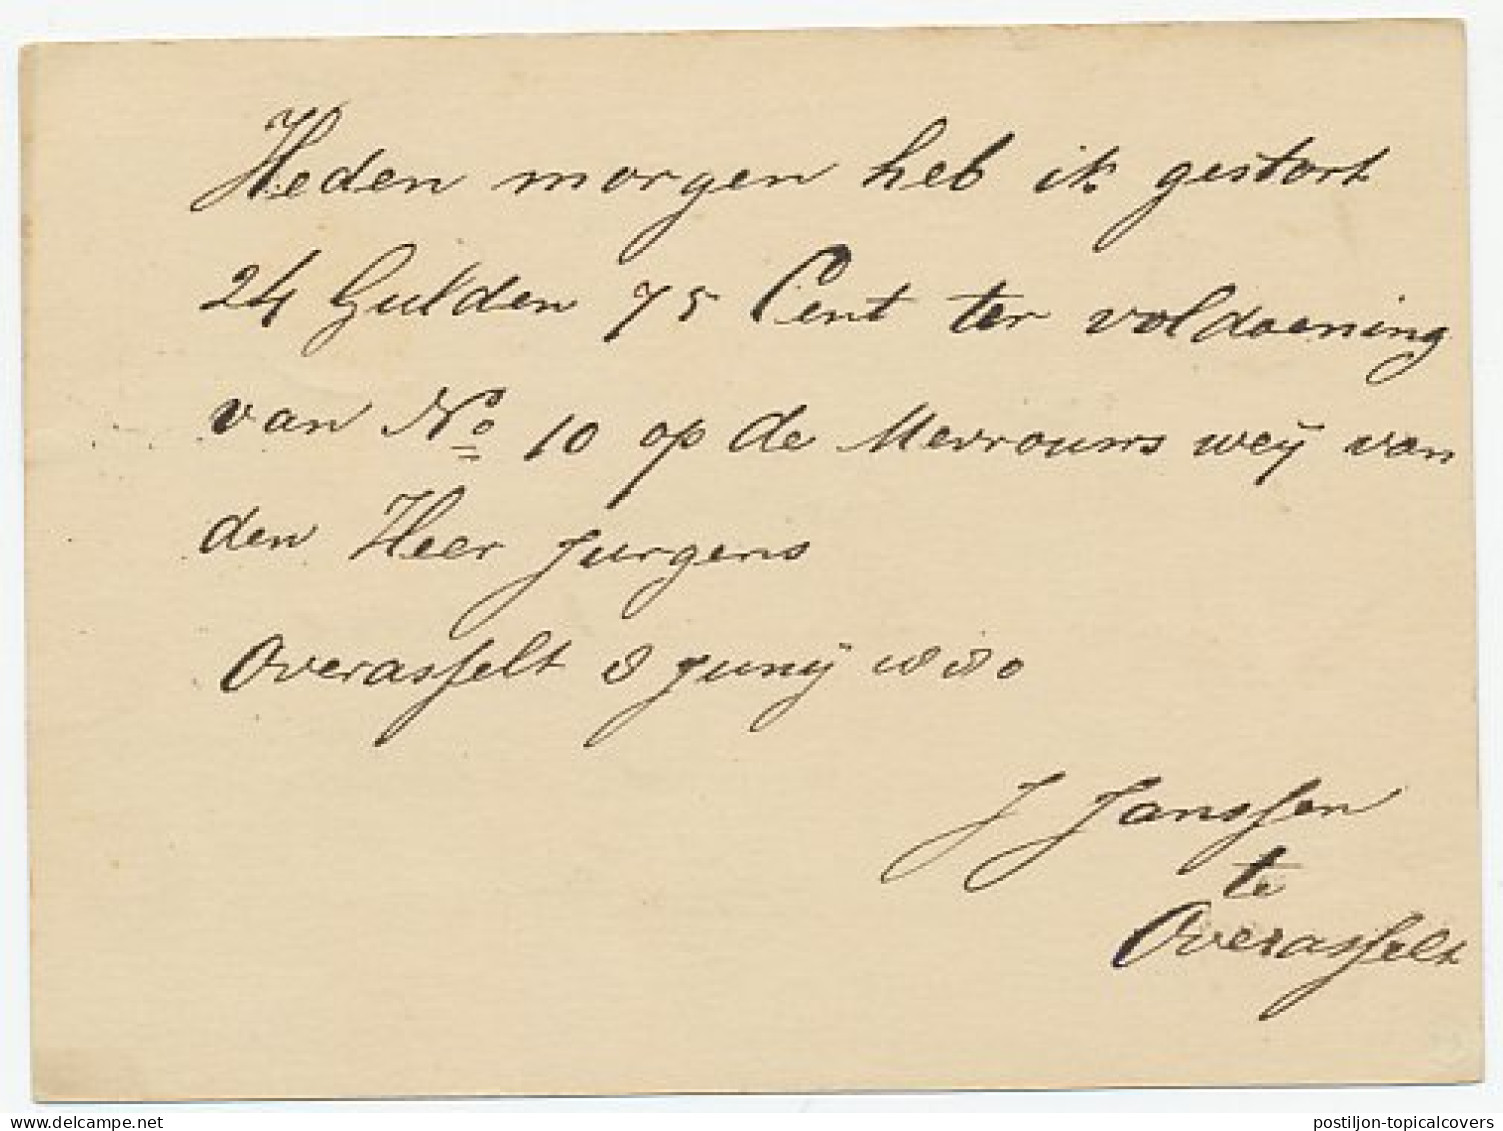 Heden morgen heb ik gestort
24 Gulden 75 Cent ter voldoening
van No 10 op de Mevrouws weij van
den Heer Jurgens
Overasselt 8 Junij 1880
J Janssen
te
Overasselt
postiljon-topicalcovers
delcampe.net